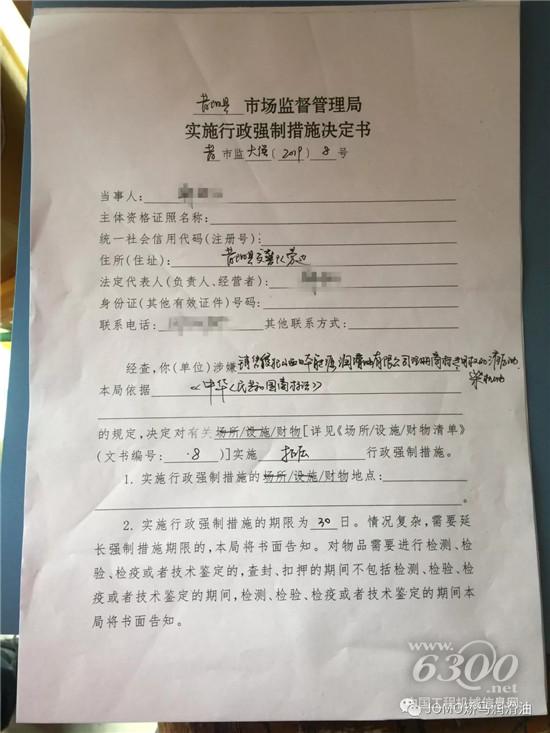 昔阳县 市场监督管理局
实施行政强制措施决定书
昔 市监 大强 (2019) 8 号
当事人:
主体资格证照名称:
统一社会信用代码(注册号):
住所(住址): 昔阳县
法定代表人(负责人、经营者):
身份证(其他有效证件)号码:
联系电话: 其他联系方式:
经查,你(单位)涉嫌 销售侵犯山西日本能源润滑油有限公司注册商标专用权的
本局依据 《中华人民共和国商标法》
的规定,决定对有关场所/设施/财物[详见《场所/设施/财物清单》
(文书编号: 8 )]实施 扣压 行政强制措施。
1. 实施行政强制措施的场所/设施/财物地点:
2. 实施行政强制措施的期限为 30 日。情况复杂,需要延
长强制措施期限的,本局将书面告知。对物品需要进行检测、检
验、检疫或者技术鉴定的,查封、扣押的期间不包括检测、检验、检
疫或者技术鉴定的期间,检测、检验、检疫或者技术鉴定的期间本
局将书面告知。
www.6300.net
中国工程机械信息网
JOMO娇马润滑油